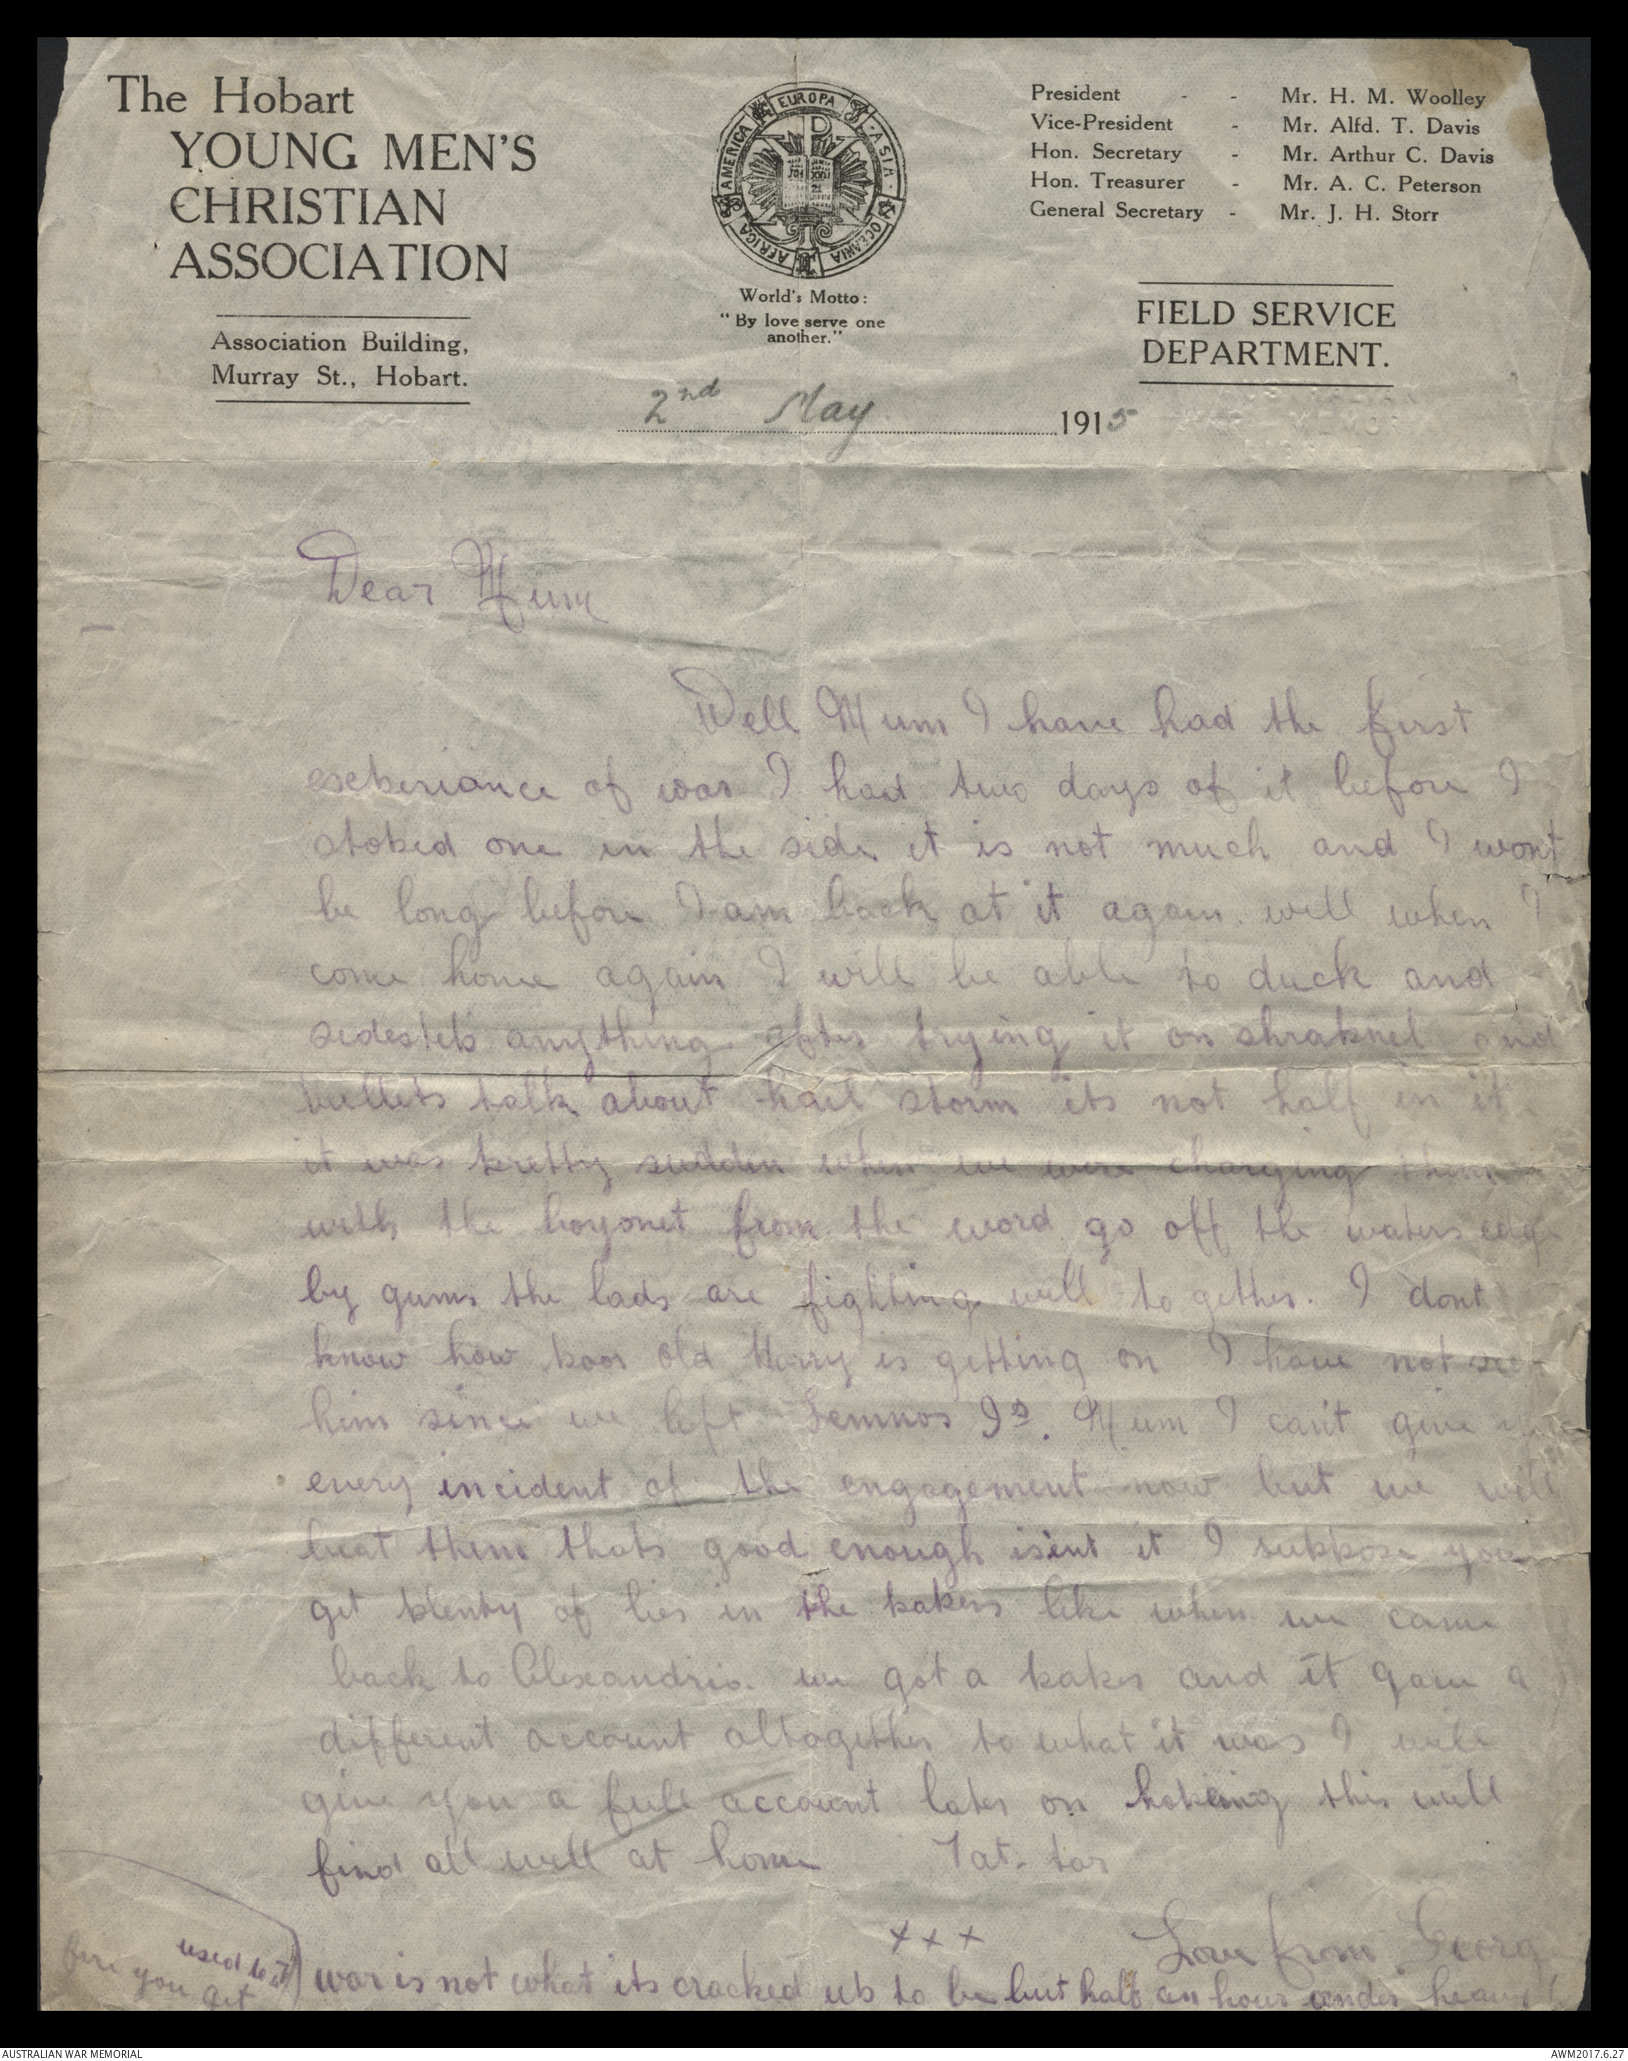 The Hobart
YOUNG MEN'S
CHRISTIAN
ASSOCIATION
Association Building,
Murray St., Hobart.
EUROPA
ASIA
OCEANIA
AFRICA
AMERICA
World's Motto:
"By love serve one
another."
President - - Mr. H. M. Woolley
Vice-President - Mr. Alfd. T. Davis
Hon. Secretary - Mr. Arthur C. Davis
Hon. Treasurer - Mr. A. C. Peterson
General Secretary - Mr. J. H. Storr
FIELD SERVICE
DEPARTMENT.
2nd May 1915
Dear Mum
Well Mum I have had the first
experiance of war I had two days of it before I
stoped one in the side it is not much and I wont
be long before I am back at it again. well when I
come home again I will be able to duck and
sidestep anything after trying it on shrapnel and
bullets talk about hail storm its not half in it.
it was pretty sudden when we were charging them
with the boyonet from the word go off the waters edge
by gums the lads are fighting well to gether. I dont
know how poor old Harry is getting on I have not see
him since we left Lemnos Is. Mum I can't give
every incident of the engagement now but we will
beat them thats good enough isint it I suppose you
get plenty of lies in the papers like when we came
back to Alexandria we got a paper and it gave a
different account altogether to what it was I will
give you a full account later on hopeing this will
find all well at home Tat-tar
x x x Love from George
war is not what its cracked up to be but half an hour under heavy
fire you get
used to it
AUSTRALIAN WAR MEMORIAL
AWM2017.6.27